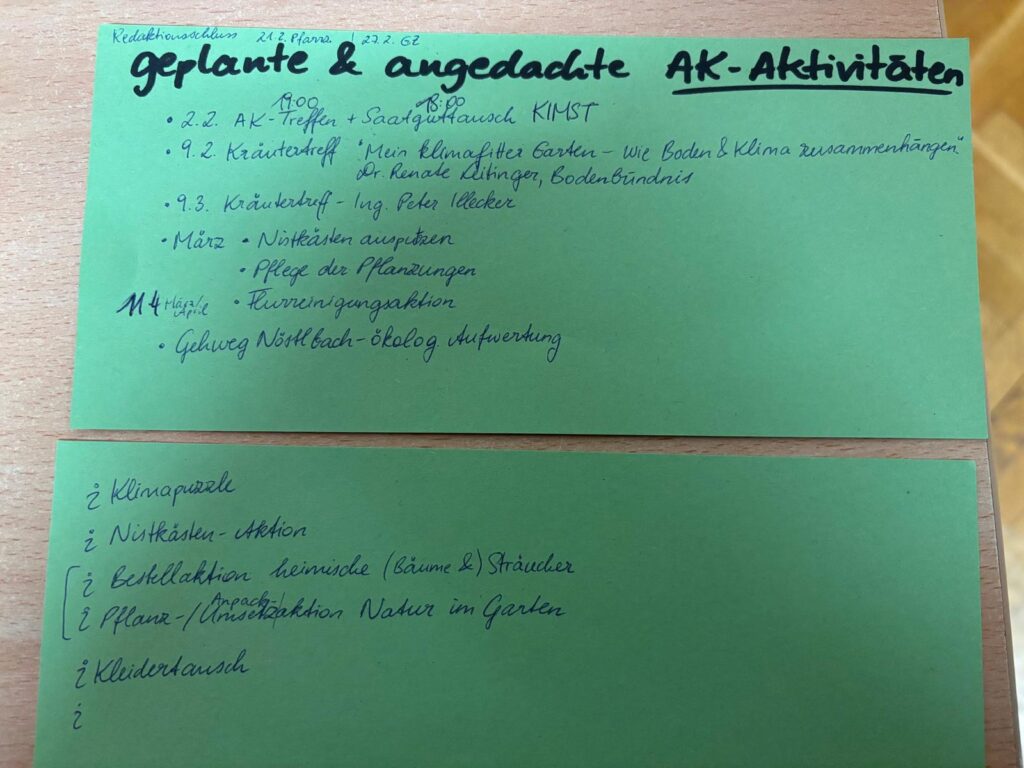 Redaktionsschluss 21.2. Pfarrz. / 27.2. GZ
geplante & angedachte AK-Aktivitäten
19:00 18:00
• 2.2. AK-Treffen + Saatguttausch KIMST
• 9.2. Kräutertreff "Mein klimafitter Garten – Wie Boden & Klima zusammenhängen"
Dr. Renate Leitinger, Bodenbündnis
• 9.3. Kräutertreff – Ing. Peter Illecker
• März • Nistkästen ausputzen
• Pflege der Pflanzungen
März/April • Flurreinigungsaktion
• Gehweg Nöstlbach – ökolog. Aufwertung
¿ Klimapuzzle
¿ Nistkästen-Aktion
¿ Bestellaktion heimische (Bäume &) Sträucher
Anpack-/
¿ Pflanz-/Umsetzaktion Natur im Garten
¿ Kleidertausch
¿